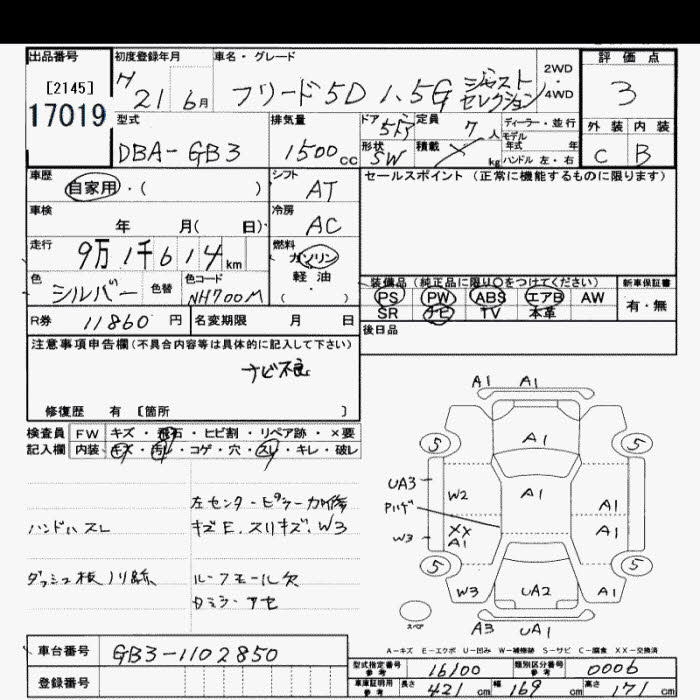 出品番号 初度登録年月 車名・グレード 評価点
[2145] 17019
H 21 6月 フリード5D 1.5G ジャスト セレクション 2WD ・ 4WD 3
型式 排気量 ドア 定員 ディーラー・並行
DBA-GB3 1500cc 5ドア 7人 モデル 年式 年
形状 SW 積載 kg ハンドル 左・右
外装 内装
C B
車歴 シフト セールスポイント(正常に機能するものに限ります)
自家用・( ) AT
車検 冷房
年 月( 日) AC
走行 燃料
9万1千614km ガソリン・軽油・( )
色 シルバー 色替 色コード NH700M
装備品(純正品に限り○をつけてください) 新車保証書
PS PW ABS エアB AW 有・無
SR ナビ TV 本革
R券 11860円 名変期限 月 日 後日品
注意事項申告欄(不具合内容等は具体的に記入して下さい)
ナビ不良
修復歴 有 〔箇所 〕
検査員 FW キズ・飛石・ヒビ割・リペア跡・×要
記入欄 内装 キズ・汚レ・コゲ・穴・スレ・キレ・破レ
左センターピラー加修
ハンドルスレ キズE.スリキズ.W3
ダッシュ板ノリ跡 ルーフモール欠
カミラーアセ
A1 A1
5 A1 5
UA3 W2 A1 A1
Pハゲ
W3 XX A1 A1
5 5
W3 UA2 A1
スペア A3 UA1
A-キズ E-エクボ U-凹み W-補修跡 S-サビ C-腐食 XX-交換済
車台番号 GB3-1102850
登録番号
型式指定番号 参考 16100 類別区分番号 参考 0006
車庫証明用 参考 長さ 421cm 幅 169cm 高さ 171cm